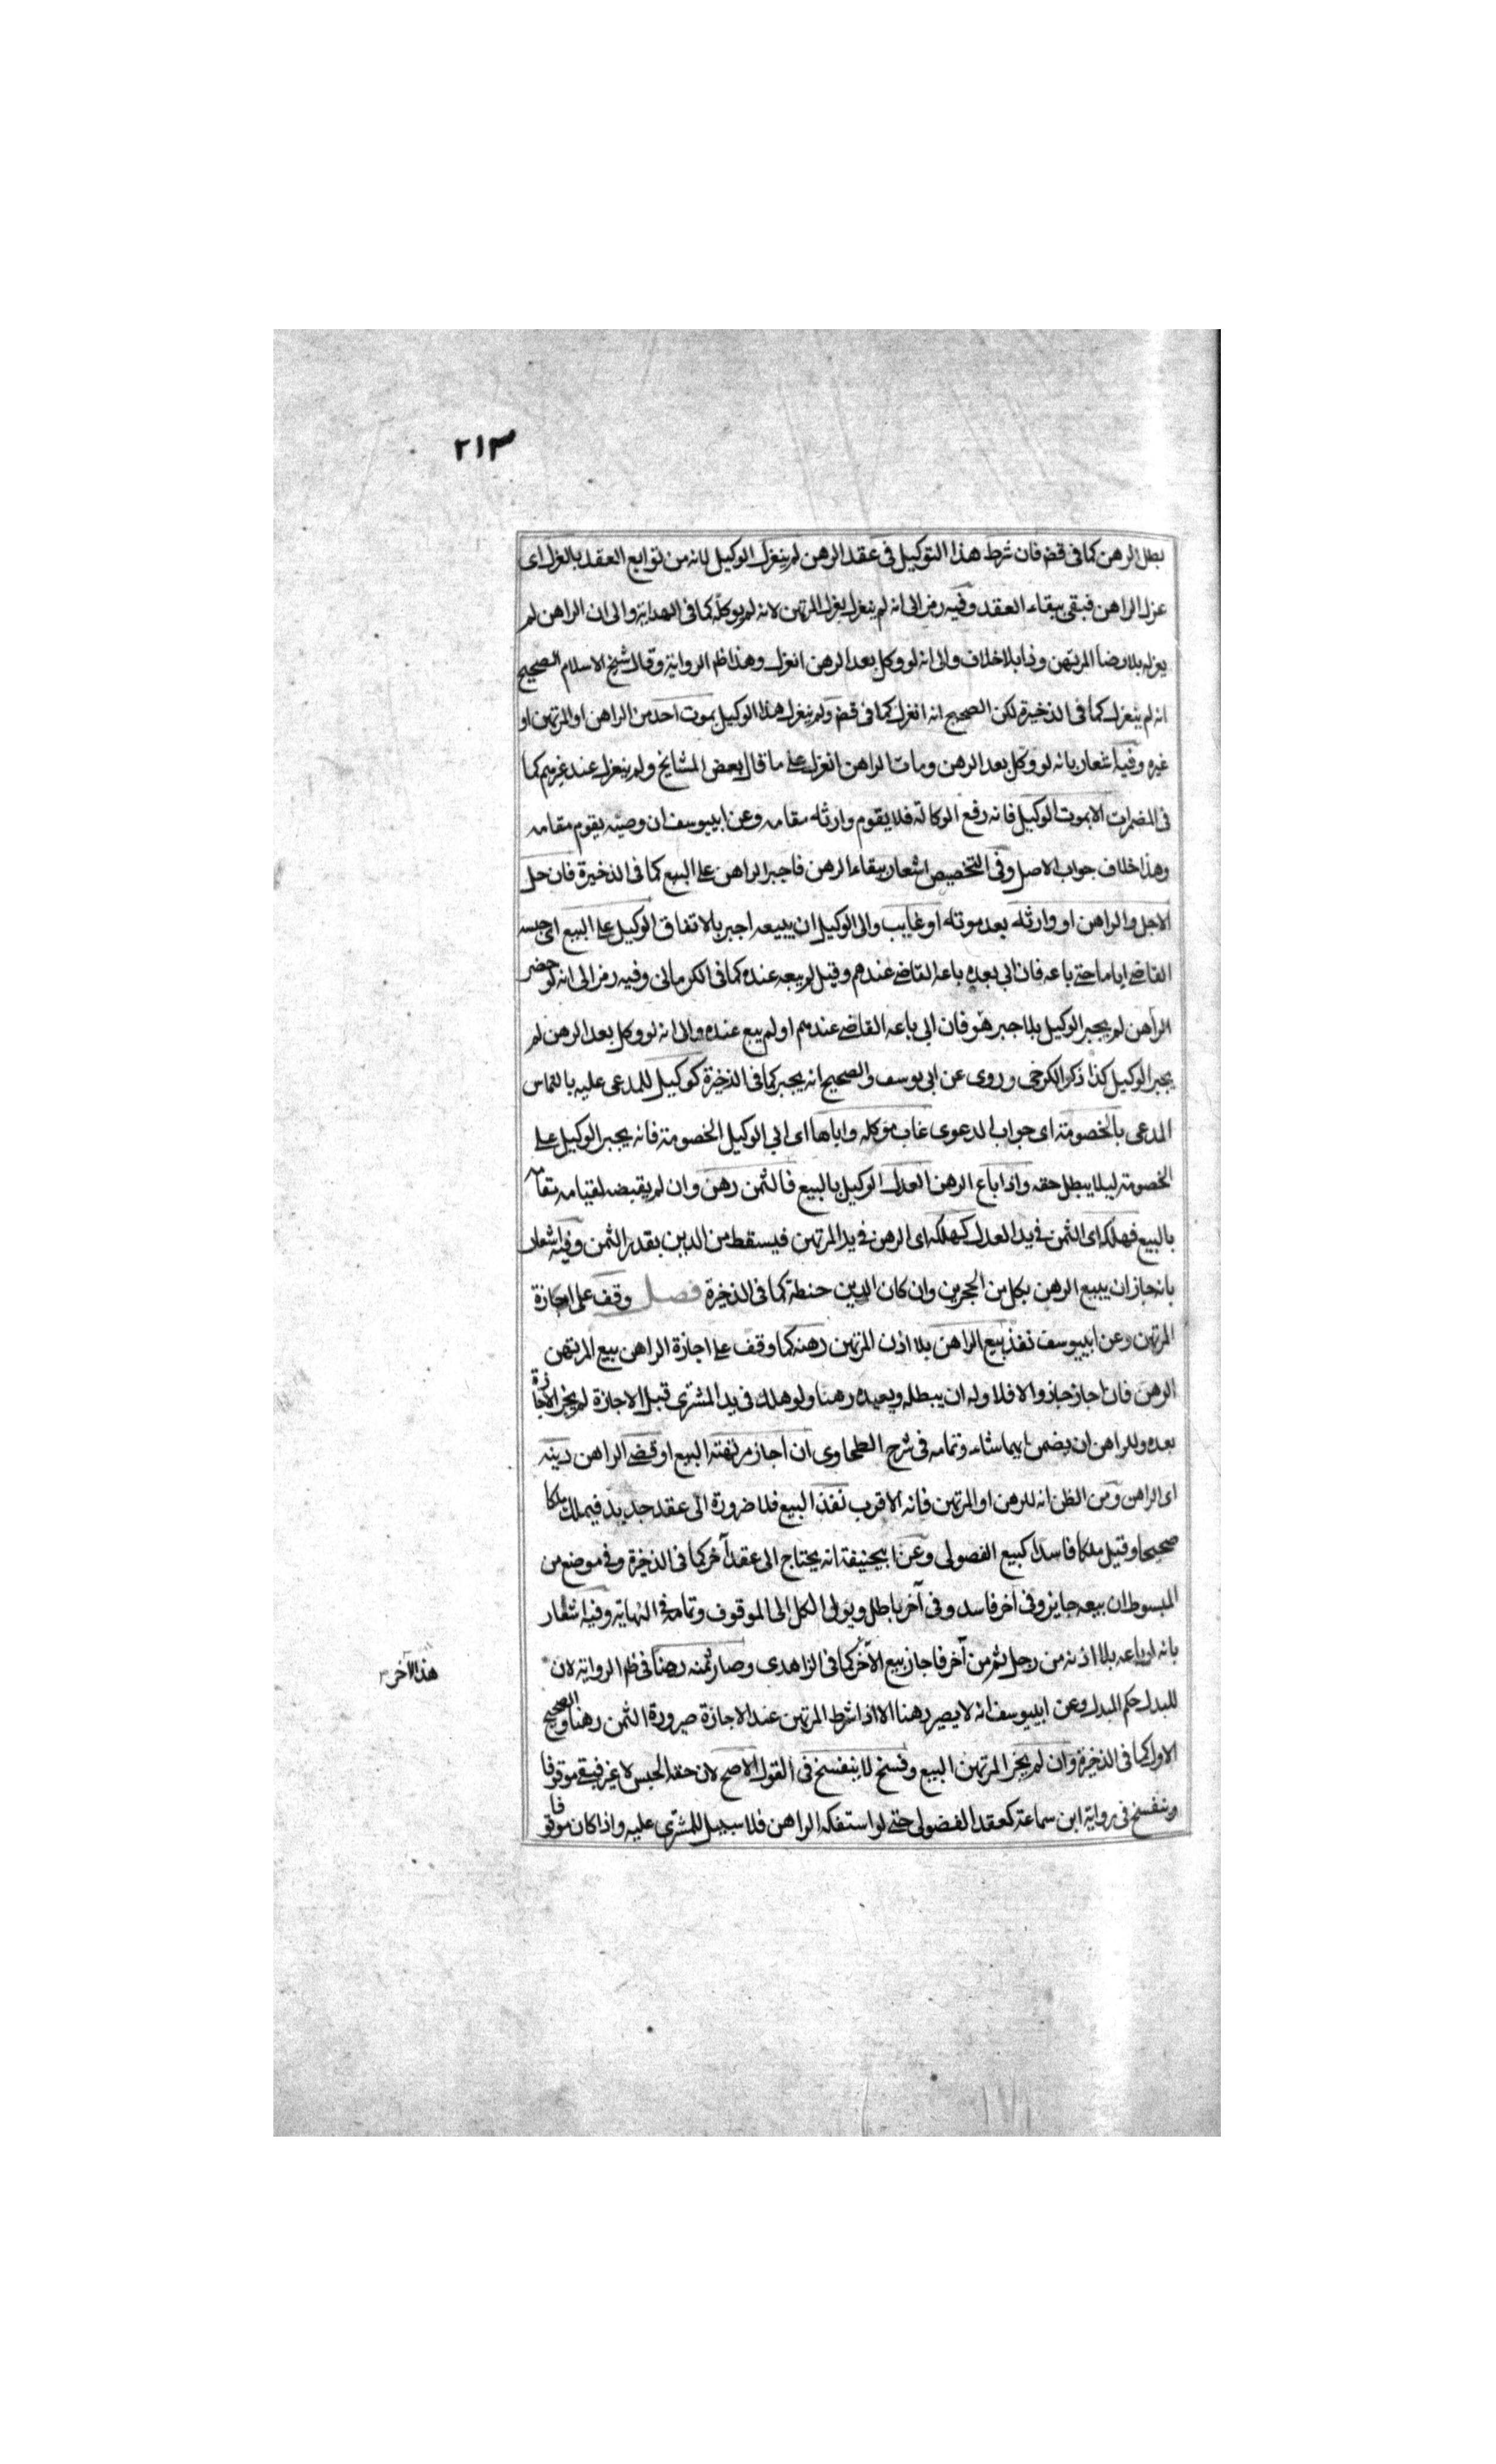 ٢١٣
بطل الرهن كما فى قضه فان شرط هذا التوكيل فى عقد الرهن لم ينعزل الوكيل لانه من توابع العقد بالعزل اى
عزل الراهن فبقى ببقاء العقد وفيه رمز الى انه لم ينعزل بعزل المرتهن لانه لم يوكله كما فى الهداية والى ان الراهن لم
يعزله بلا رضا المرتهن وذا بلا خلاف والى انه لو وكل بعد الرهن انعزل وهذا ظم الرواية وقال شيخ الاسلام الصحيح
انه لم ينعزل كما فى الذخيرة لكن الصحيح انه انعزل كما فى قضه ولم ينعزل هذا الوكيل بموت احد من الراهن او المرتهن او
غيره وفيه اشعار بانه لو وكل بعد الرهن ومات الراهن انعزل على ما قال بعض المشايخ ولم ينعزل عند غيرهم كما
فى المضمرات الا بموت الوكيل فانه رفع الوكالة فلا يقوم وارثه مقامه وعن ابييوسف ان وصيه يقوم مقامه
وهذا خلاف جواب الاصل وفى التخصيص اشعار ببقاء الرهن فاجبر الراهن على البيع كما فى الذخيرة فان حل
الاجل والراهن او وارثه بعد موته او غايب والى الوكيل ان يبيعه اجبر بالاتفاق الوكيل على البيع اى حبسه
القاضى اياما حتى باعه فان ابى بعده باعه القاضى عندهم وقيل لم يبعه عنده كما فى الكرمانى وفيه رمز الى انه لو حضر
الراهن لم يجبر الوكيل بل اجبر هو فان ابى باعه القاضى عندهم او لم يبع عنده والى انه لو وكل بعد الرهن لم
يجبر الوكيل كذا ذكر الكرخى وروى عن ابى يوسف والصحيح انه يجبر كما فى الذخيرة كوكيل للمدعى عليه بالتماس
المدعى بالخصومة اى جواب الدعوى غاب موكله واباها اى ابى الوكيل الخصومة فانه يجبر الوكيل على
الخصومة ليلا يبطل حقه واذا باع الرهن العدل الوكيل بالبيع فالثمن رهن وان لم يقبض لقيامه مقامه
بالبيع فهلكه اى الثمن فى يد العدل كهلكه اى الرهن فى يد المرتهن فيسقط من الدين بقدر الثمن وفيه اشعار
بانه جاز ان يبيع الرهن بكل من الحجرين وان كان الدين حنطة كما فى الذخيرة فصل وقف على اجازة
المرتهن وعن ابييوسف نفذ بيع الراهن بلا اذن المرتهن رهنه كما وقف على اجازة الراهن بيع المرتهن
الرهن فان اجاز جاز والا فلا وله ان يبطله ويعيده رهنا ولو هلك فى يد المشترى قبل الاجازة لم يجز الاجازة
بعده وللراهن ان يضمن ايهما شاء وتمامه فى شرح الطحاوى ان اجاز مرتهنه البيع او قضى الراهن دينه
اى الراهن ومن الظن انه للرهن او المرتهن فانه الاقرب نفذ البيع فلا ضرورة الى عقد جديد فيملك ملكا
صحيحا وقيل ملكا فاسدا كبيع الفضولى وعن ابيحنيفة انه يحتاج الى عقد آخر كما فى الذخيرة وفى موضع من
المبسوط ان بيعه جايز وفى آخر فاسد وفى آخر باطل ويؤل الكل الى الموقوف وتمامه فى النهاية وفيه اشعار
بانه لو باعه بلا اذنه من رجل ثم من آخر فاجاز بيع الآخر كما فى الزاهدى وصار ثمنه رهنا فى ظم الرواية لان
نفذ الآخر
للبدل حكم المبدل وعن ابييوسف انه لا يصير رهنا الا اذا شرط المرتهن عند الاجازة صيرورة الثمن رهنا والصحيح
الاول كما فى الذخيرة وان لم يجز المرتهن البيع وفسخ لا ينفسخ فى القول الاصح لان حقه الحبس لا غير فبقى موقوفا
وينفسخ فى رواية ابن سماعة كعقد الفضولى حتى لو استفكه الراهن فلا سبيل للمشترى عليه واذا كان موقوفا